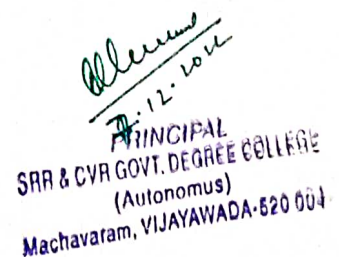 .12.2022
PRINCIPAL
SRR & CVR GOVT. DEGREE COLLEGE
(Autonomus)
Machavaram, VIJAYAWADA-520 004